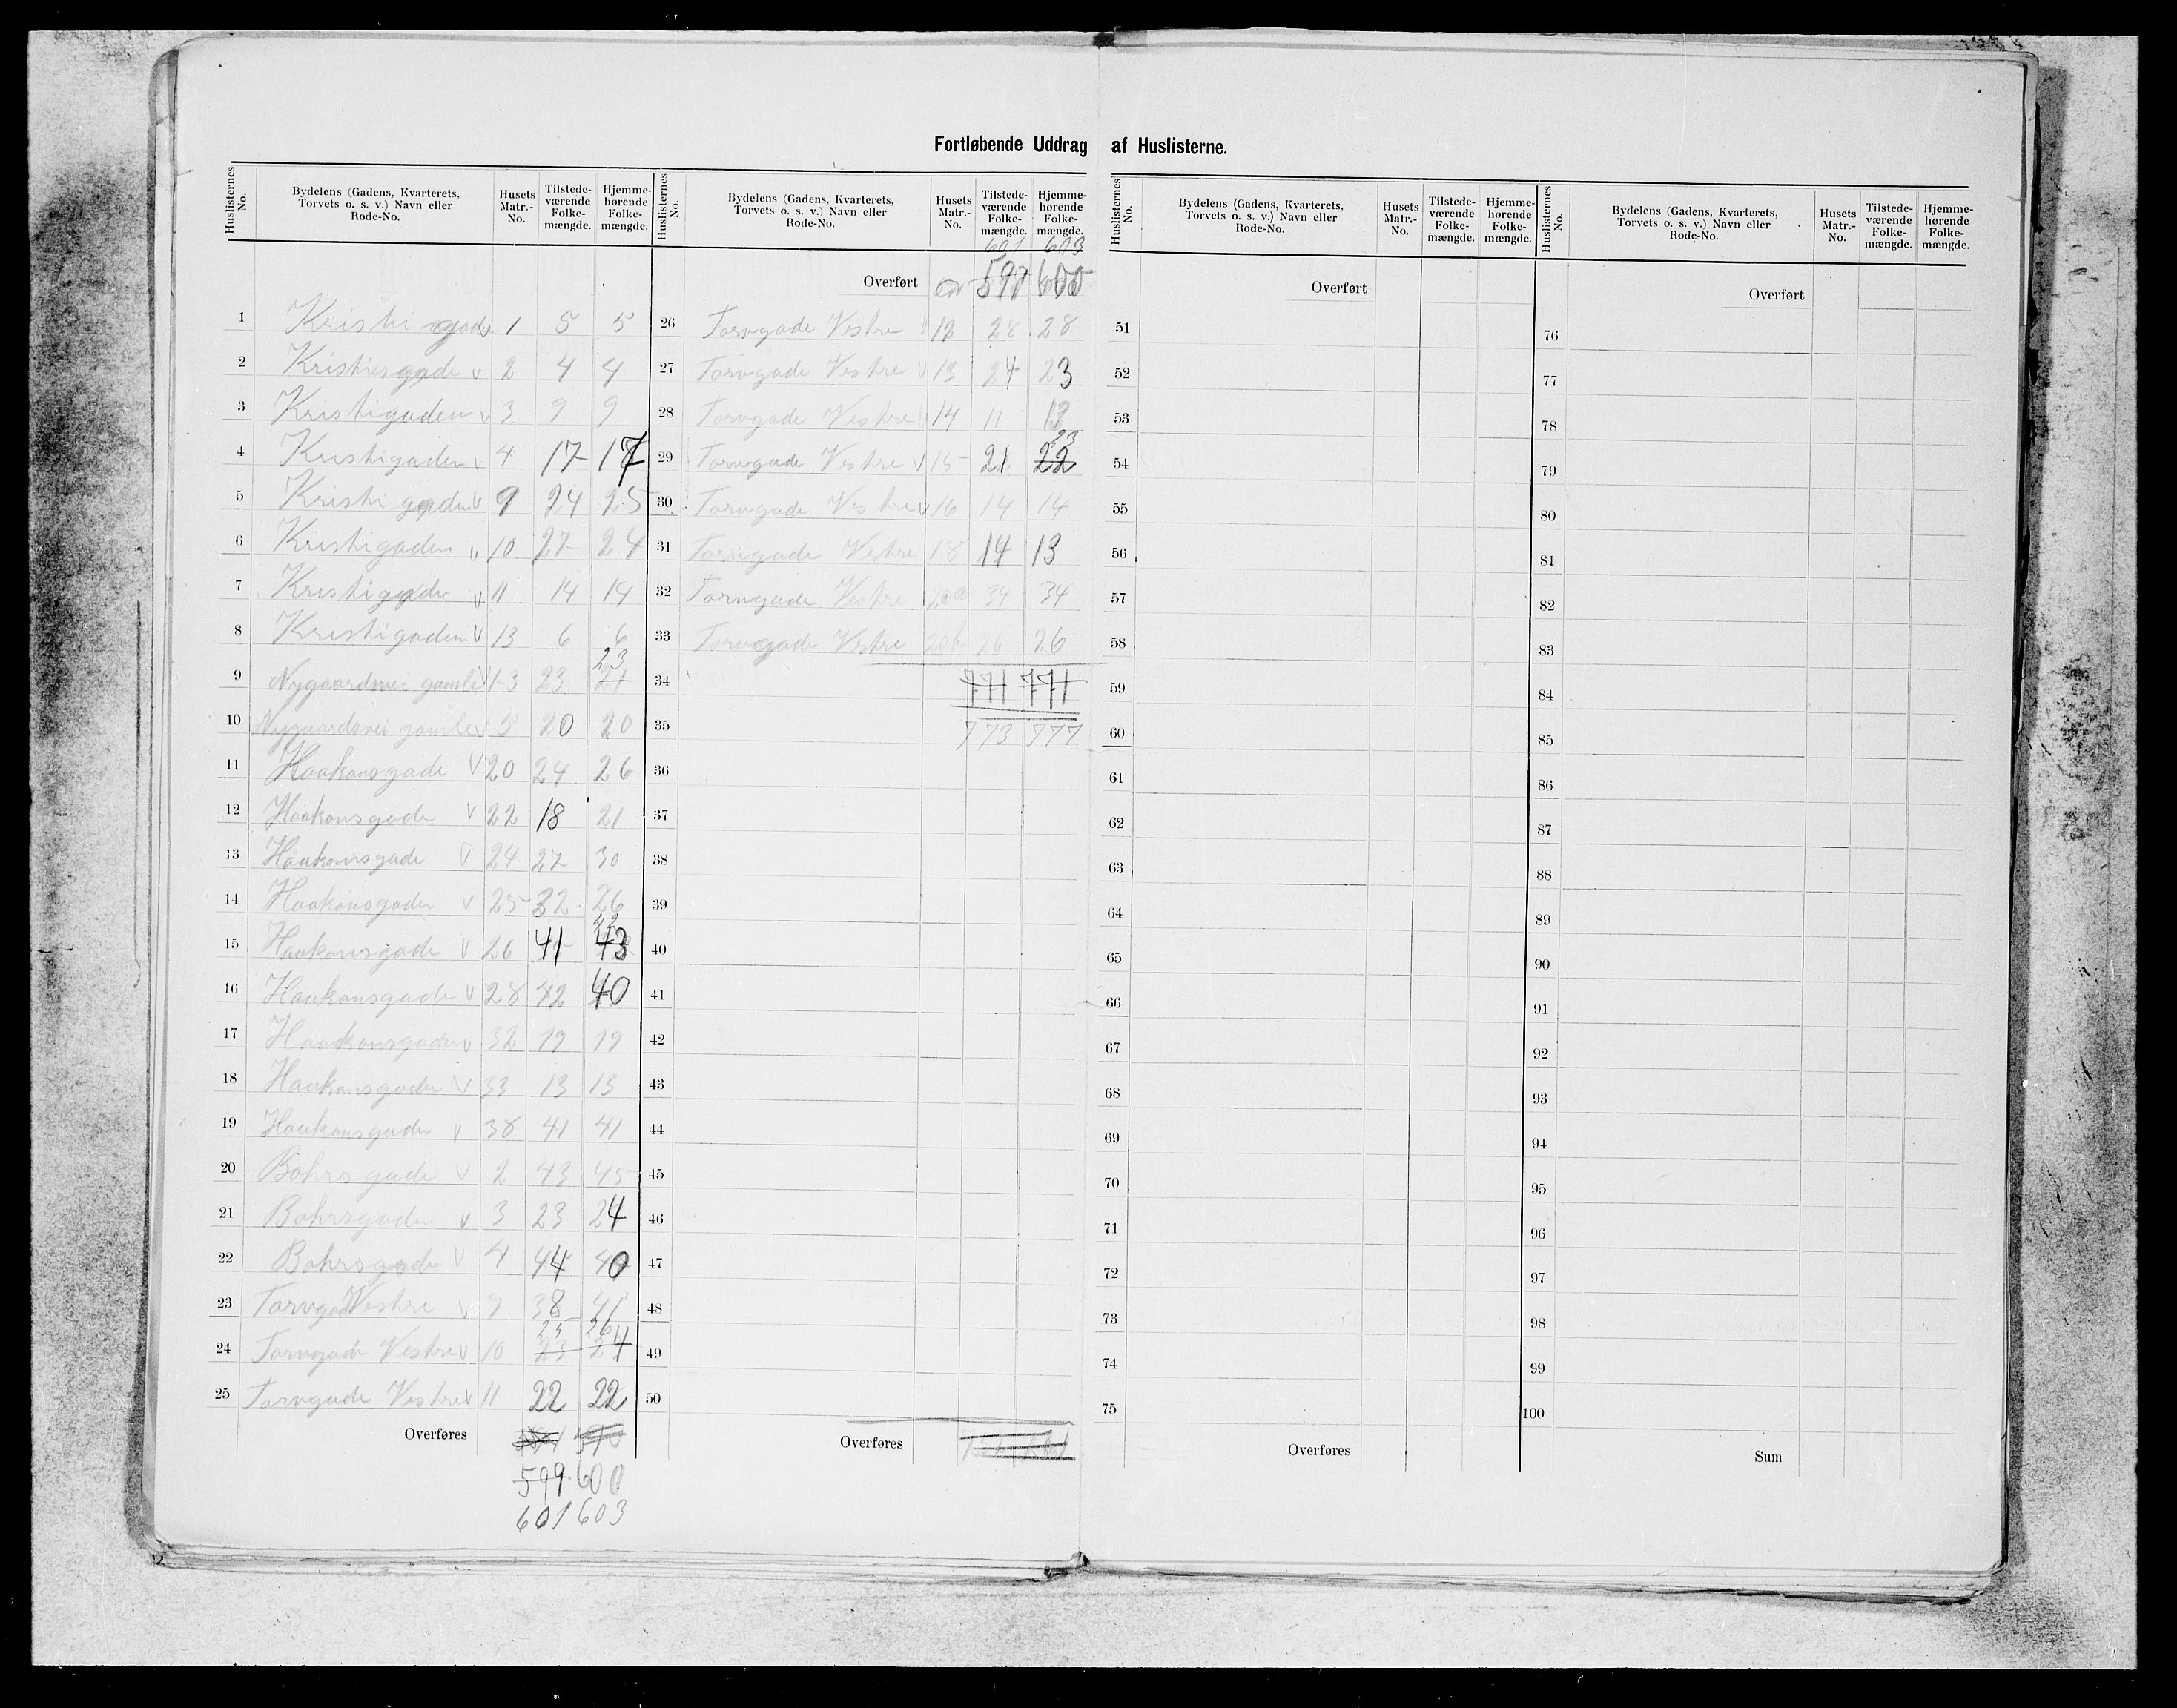 Fortløbende Uddrag af Huslisterne.
Huslisternes No. Bydelens (Gadens, Kvarterets, Torvets o. s. v.) Navn eller Rode-No. Husets Matr.-No. Tilstedeværende Folkemængde. Hjemmehørende Folkemængde.
1 Kristi gaden v 1 5 5
2 Kristiesgade v 2 4 4
3 Kristigaden v 3 9 9
4 Kristigaden v 4 17 17
5 Kristi gaden v 9 24 25
6 Kristigaden v 10 22 24
7 Kristigaden v 11 14 14
8 Kristigaden v 13 6 6
23
9 Nygaardsvei gamle v 1-3 23 21
10 Nygaardsvei gamle v 5 20 20
11 Haakonsgade v 20 24 26
12 Haakonsgade v 22 18 21
13 Haakonsgade v 24 27 30
14 Haakonsgaden v 25 32 26
42
15 Haakonsgade v 26 41 43
16 Haakonsgade v 28 42 40
17 Haakonsgaden v 32 19 19
18 Haakonsgaden v 33 13 13
19 Haakonsgaden v 38 41 41
20 Bohrsgade v 2 43 45
21 Bohrsgaden v 3 23 24
22 Bohrsgade v 4 44 40
23 Torvgade Vestre v 9 38 41
25 26
24 Torvgade Vestre v 10 23 24
25 Torvgade Vestre v 11 22 22
Overføres
599 600
601 603
Huslisternes No. Bydelens (Gadens, Kvarterets, Torvets o. s. v.) Navn eller Rode-No. Husets Matr.-No. Tilstedeværende Folkemængde. Hjemmehørende Folkemængde.
601 603
Overført 599 600
26 Torvgade Vestre v 12 28 28
27 Torvgade Vestre v 13 24 23
28 Torvgade Vestre v 14 11 13
23
29 Torvgade Vestre v 15 21 22
30 Torvgade Vestre v 16 14 14
31 Torvgade Vestre 18 14 13
32 Torvgade Vestre 20a 34 34
33 Torvgade Vestre 20b 26 26
34 771 771
35 773 777
36
37
38
39
40
41
42
43
44
45
46
47
48
49
50
Overføres
Huslisternes No. Bydelens (Gadens, Kvarterets, Torvets o. s. v.) Navn eller Rode-No. Husets Matr.-No. Tilstedeværende Folkemængde. Hjemmehørende Folkemængde.
Overført
51
52
53
54
55
56
57
58
59
60
61
62
63
64
65
66
67
68
69
70
71
72
73
74
75
Overføres
Huslisternes No. Bydelens (Gadens, Kvarterets, Torvets o. s. v.) Navn eller Rode-No. Husets Matr.-No. Tilstedeværende Folkemængde. Hjemmehørende Folkemængde.
Overført
76
77
78
79
80
81
82
83
84
85
86
87
88
89
90
91
92
93
94
95
96
97
98
99
100
Sum